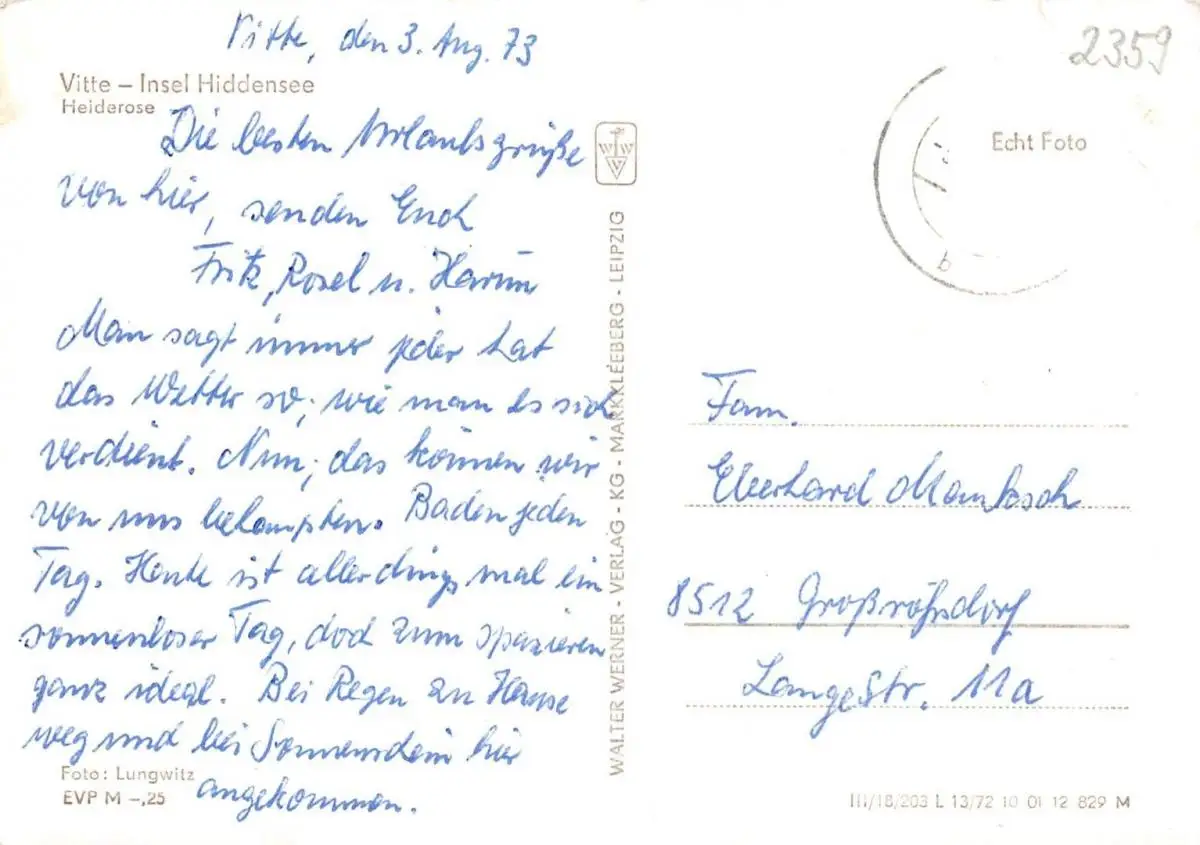 Vitte, den 3. Aug. 73
2359
Vitte – Insel Hiddensee
Heiderose
Die besten Urlaubsgrüße
von hier, senden Euch
Fritz, Rosel u.
Man sagt immer jeder hat
das Wetter so, wie man es sich
verdient. Nun, das können wir
von uns behaupten. Baden jeden
Tag. Heute ist allerdings mal ein
sonnenloser Tag, doch zum spazieren
ganz ideal. Bei Regen zu Hause
weg und bei Sonnenschein hier
angekommen.
Foto: Lungwitz
EVP M –,25
WW
V
WALTER WERNER - VERLAG - KG - MARKKLEEBERG - LEIPZIG
Echt Foto
b
Fam.
Eberhard
8512 Großröhrsdorf
Langestr. 11a
III/18/203 L 13/72 10 01 12 829 M